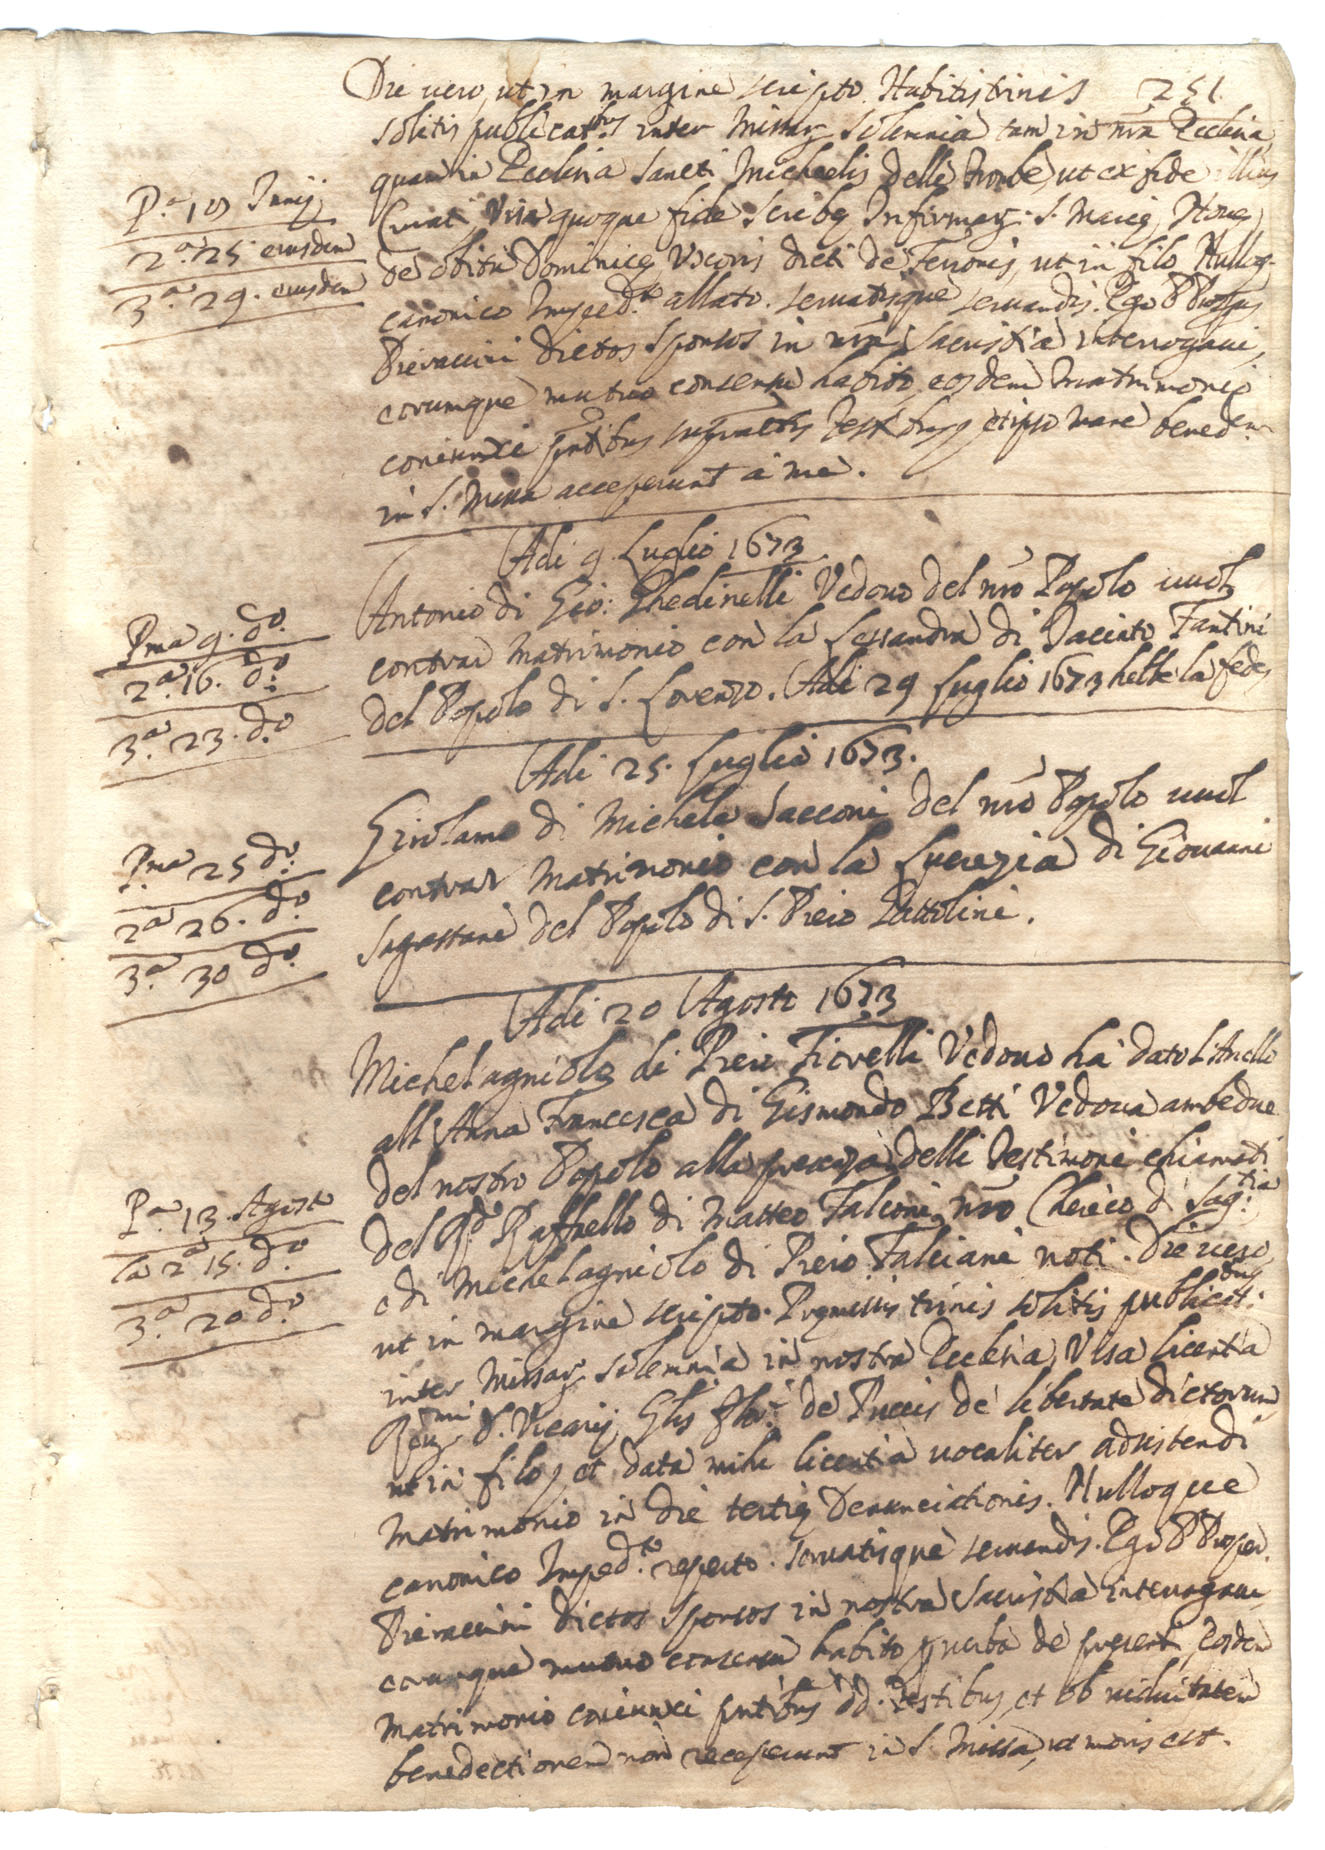 251.
Die vero, ut in margine scripto. Habitis trinis
solitis publicat.bus inter Missar. solemnia tam in nra Ecclesia,
quam in Ecclesia Sancti Michaelis delle Trombe, ut ex fide illius
Curati, Visa quoque fide Scribę Infirmar. S. Marię Nouę,
de obitu Dominicę Vxoris dicti de Ferronis, ut in filo, Nulloq.
canonico Imped.to allato. seruatisque seruandis. Ego P. Prosper
Pieraccini dictos Sponsos in nra Sacristia interrogaui,
eorumque mutuo consensu habito, eosdem Matrimonio
coniunxi pntibus supradictis Testibus, et ipso mane bened.em
in S. Missa acceperunt à me.
P.a 18 Junij
2.a 25 eiusdem
3.a 29. eiusdem
Adi 9. Luglio 1673
Antonio di Gio: Ghedinelli Vedouo del nro Popolo uuol
contrar Matrimonio con la Lessandra di Jacinto Fantini
del Popolo di S. Lorenzo. Adi 29 Luglio 1673 hebbe la fede
Pma 9. do.
2.a 16. do.
3.a 23. do
Adi 25. Luglio 1673.
Girolamo di Michele Sacconi del nro Popolo uuol
contrar Matrimonio con la Lucrezia di Giouanni
del Popolo di S. Piero Gattolini.
Pma 25 do.
2a 26. do.
3.a 30 do.
Adi 20 Agosto 1673
Michelagniolo di Piero Fiorelli Vedouo ha dato l'Anello
all'Anna Francesca di Gismondo Betti Vedoua ambedue
del nostro Popolo alla presenza delli Testimoni chiamati
del Rdo Raffaello di Matteo Falconi nro Cherico di Sag.tia
e di Michelagniolo di Piero Falciani noti. Die uero,
ut in margine scripto. Pręmissis trinis solitis publicat.bus
inter Missar. solemnia in nostra Ecclesia, Visa licentia
D. Vicarij Glis Flor. de Puccis de libertate dictorum,
ut in filo, et data mihi licentia uocaliter adsistendi
Matrimonio in die tertię Denunciationis. Nulloque
canonico Imped.to reperto. seruatisque seruandis. Ego P. Prosper
Pieraccini dictos Sponsos in nostra Sacristia interrogaui,
eorumque mutuo consensu habito p uerba de presenti, eosdem
Matrimonio coniunxi pntibus dd. Testibus, et ob uiduitatem
benedictionem non receperunt in S. Missa, ut moris est.
P.a 13 Agosto
la 2.a 15. do.
3.a 20 do.